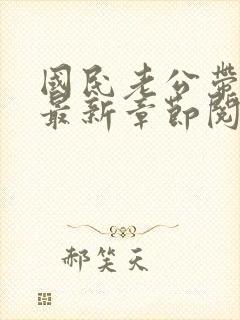 國民老公帶
最新章節閱
郝笑天